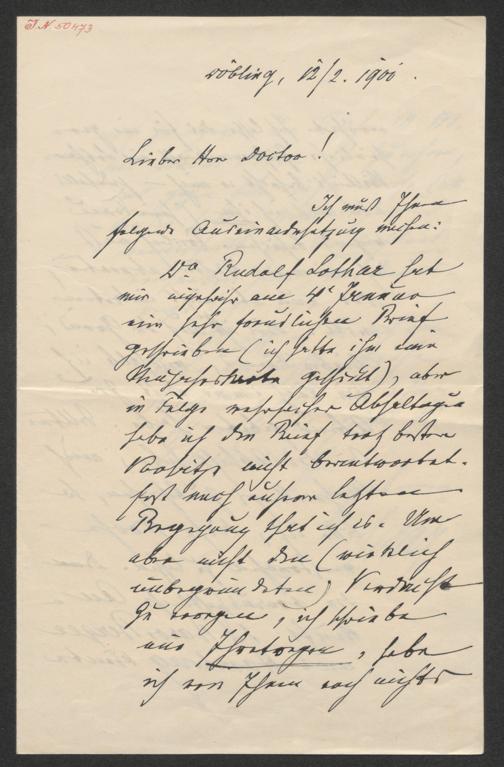 J.N. 50473
Döbling, 12/2. 1900.
Lieber Herr Doctor!
Ich muß Ihnen
folgende Auseinandersetzung machen:
Dr Rudolf Lothar hat
mir ungefähr am 4t Jänner
ein sehr freundlichen Brief
geschrieben (ich hatte ihm eine
Neujahrskarte geschickt), aber
in Folge mehrfacher Abhaltungen
habe ich den Brief trotz bester
Vorsätze nicht beantwortet.
Erst nach unserer letzten
Begegnung that ich es. Um
aber nicht den (wirklich
unbegründeten) Verdacht
zu erregen, ich schriebe
nur Ihretwegen, habe
ich von Ihnen noch nichts